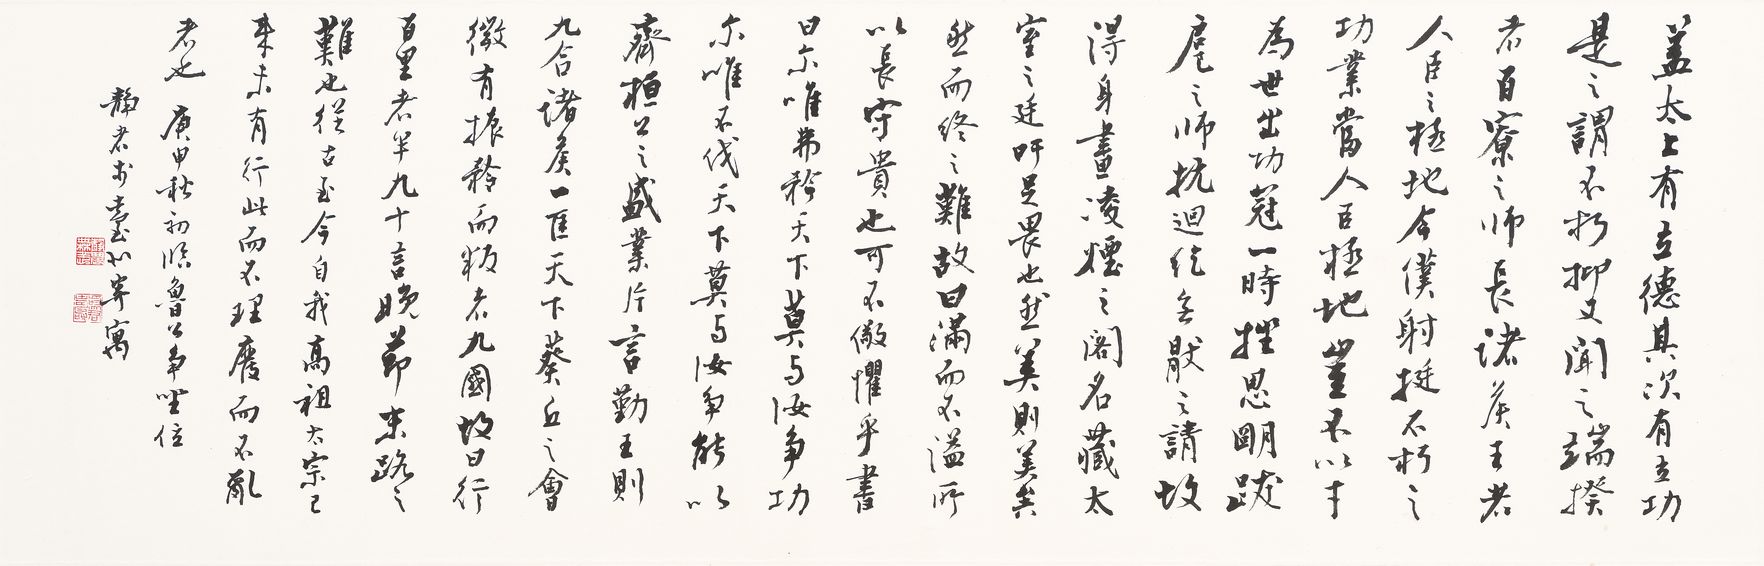 蓋太上有立德其次有立功
是之謂不朽抑又聞之端揆
者百寮之師長諸侯王者
人臣之極地今僕射挺不朽之
功業當人臣極地豈不以才
為世出功冠一時挫思明跋
扈之師抗迴紇無猒之請故
得身畫凌煙之閣名藏太
室之廷吁足畏也然美則美矣
然而終之難故曰滿而不溢所
以長守貴也可不儆懼乎書
曰尓唯弗矜天下莫与汝争功
尓唯不伐天下莫与汝争能以
齊桓公之盛業片言勤王則
九合諸侯一匡天下葵丘之會
微有振矜而叛者九國故曰行
百里者半九十言晚節末路之
難也從古至今自我高祖太宗已
来未有行此而不理廢而不亂
者也 庚申秋初臨魯公争坐位
靜者於臺北寄寓